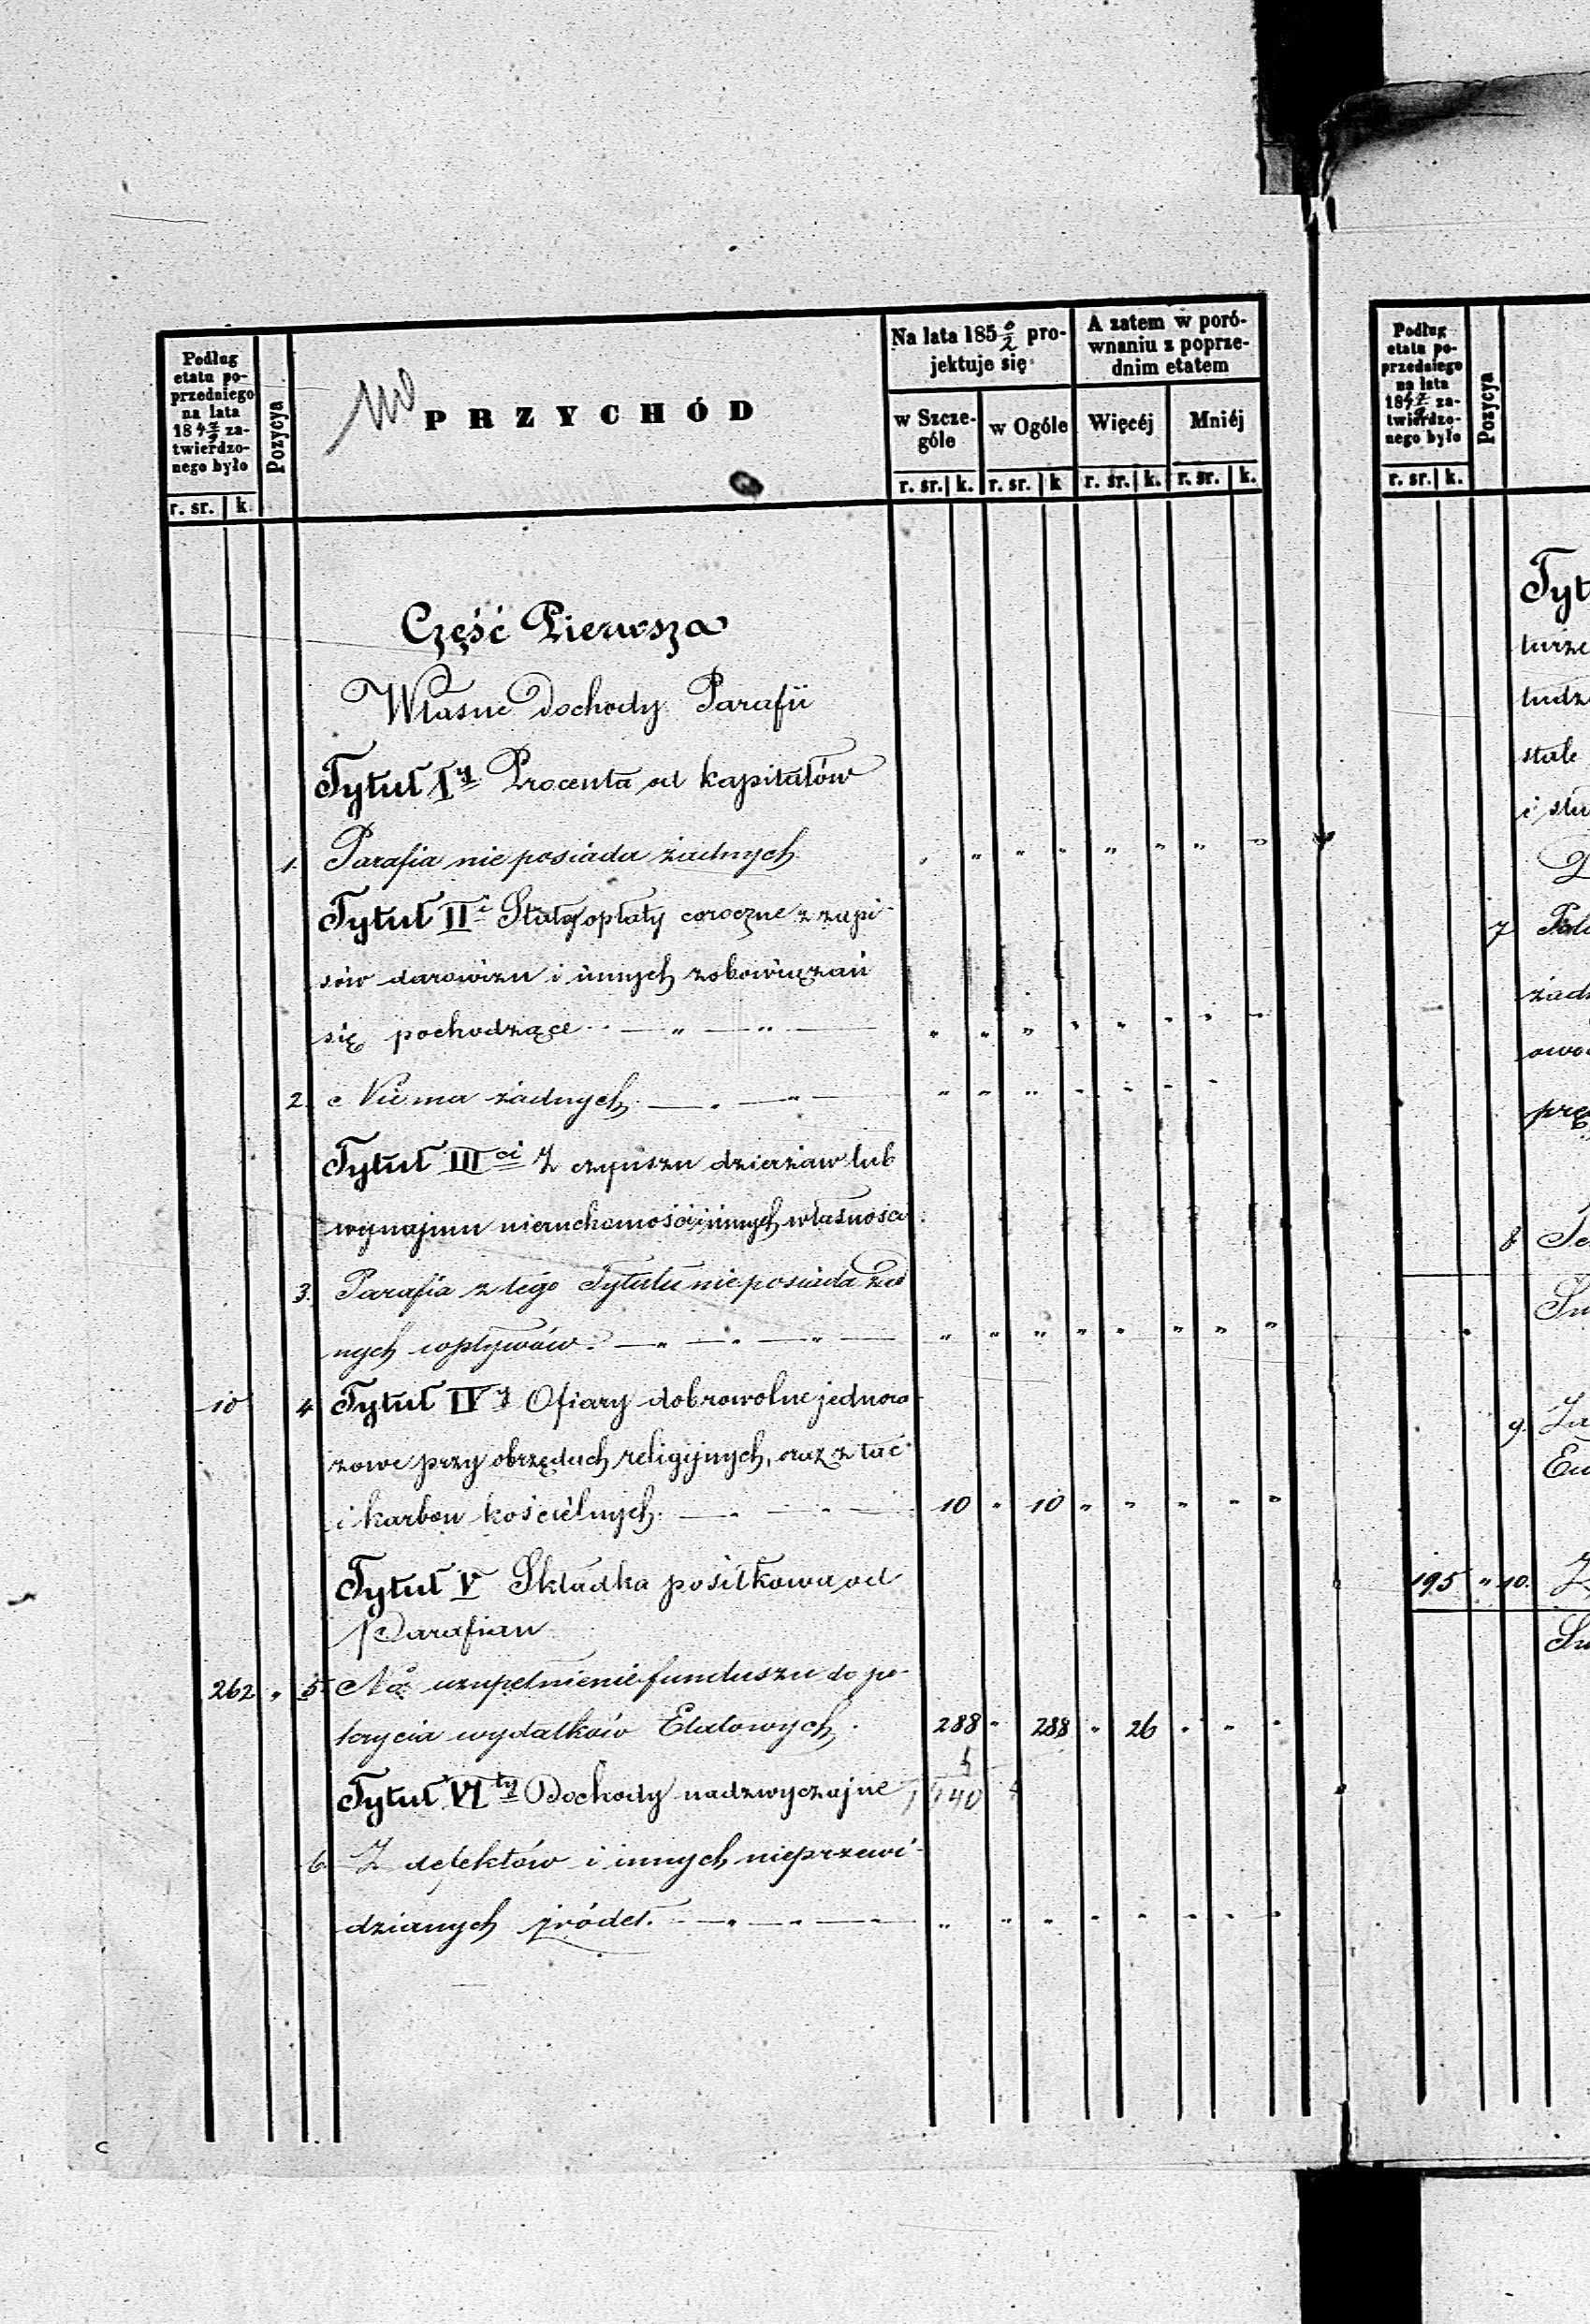 Podług etatu poprzedniego na lata 184 7/9 zatwierdzonego było
r. sr. | k.
Pozycya
PRZYCHÓD
Na lata 185 0/2 projektuje się
w Szczególe
w Ogóle
r. sr. | k. r. sr. | k
A zatem w porównaniu z poprzednim etatem
Więcéj
Mniéj
r. sr. | k. r. sr. | k.
Część Pierwsza
Własne Dochody Parafii
Tytuł Iy Procenta od kapitałów
1. Parafia nie posiada żadnych " " " " " " "
Tytuł IIi Stałe opłaty coroczne z zapi-
sów darowizn i innych zobowiązań
się pochodzące — " — " — " " " " " " " "
2. Nie ma żadnych — " — " — " " " " " " "
Tytuł IIIci Z czynszu dzierżaw lub
wynajmu nieruchomości i innych własności
3. Parafia z tego Tytułu nie posiada żad
nych wpływów. — " — " — " — " " " " " " " "
10 4 Tytuł IVy Ofiary dobrowolne jednora-
zowe przy obrzędach religijnych, oraz z tac
i karbon kościelnych. — " — " — 10 " 10 " " " " "
Tytuł V Składka posiłkowa od
Parafian
262 " 5. Na uzupełnienie funduszu do po-
krycia wydatków Etatowych. 288 " 288 " 26 " " "
Tytuł VIty Dochody nadzwyczajne 140
6. Z defektów i innych nieprzewi-
dzianych źródeł. — " — " — " " " " " " " "
Podług etatu poprzedniego na lata 184 7/9 zatwierdzonego było
r. sr. | k.
Pozycya
Tyt
turze
ludz
stałe
i słu
7
żad
owo
prę
8
9.
195 " 10.